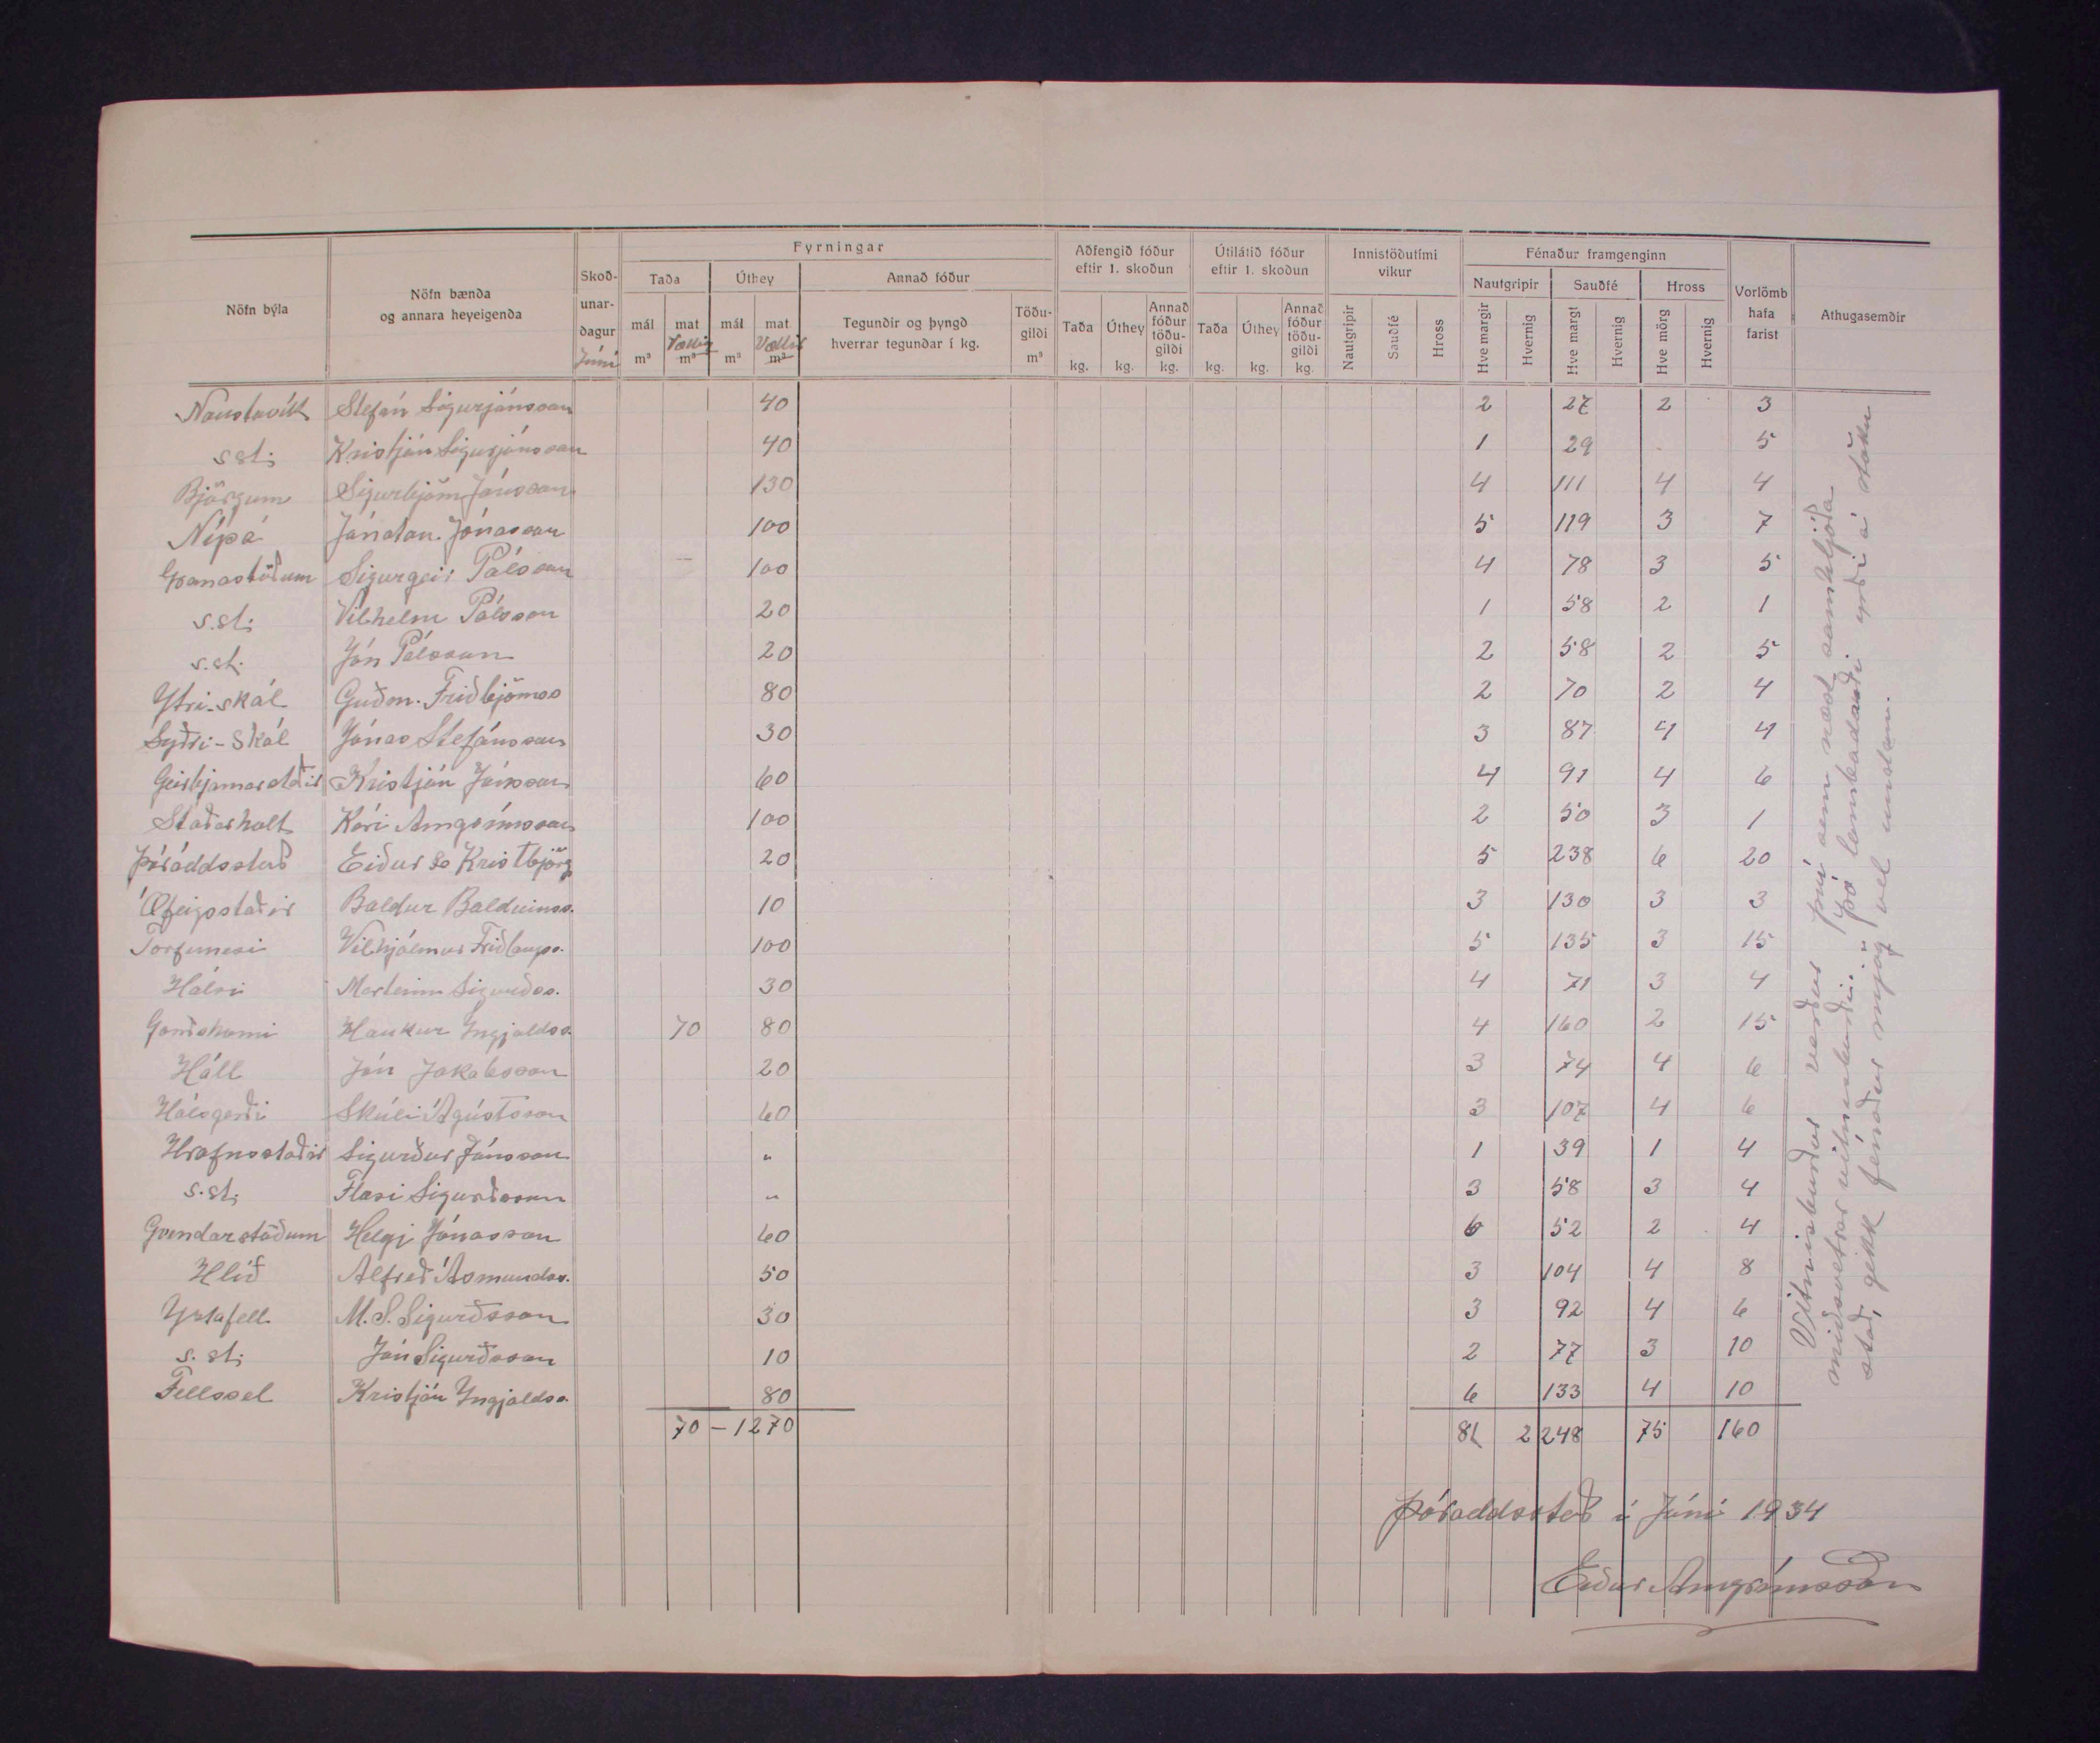 Fyrningar
Aðfengið fóður eftir 1. skoðun
Útilátið fóður eftir 1. skoðun
Innistöðutími vikur
Fénaður framgenginn
Nöfn býla
Nöfn bænda og annara heyeigenda
Skoð-unar-dagur Júní
Taða
Úthey
Annað fóður
Nautgripir
Sauðfé
Hross
Vorlömb hafa farist
Athugasemdir
mál m³
mat Vættir m³
mál m³
mat Vættir m³
Tegundir og þyngd hverrar tegundar í kg.
Töðu-gildi m³
Taða kg.
Úthey kg.
Annað fóður töðu-gildi kg.
Taða kg.
Úthey kg.
Annað fóður töðu-gildi kg.
Nautgripir
Sauðfé
Hross
Hve margir
Hvernig
Hve margt
Hvernig
Hve mörg
Hvernig
Naustavík Stefán Sigurjónsson 40 2 27 2 3
s.st. Kristján Sigurjónsson 40 1 29 5
Björgum Sigurbjörn Jónsson 130 4 111 4 4
Nípá Jónatan Jónasson 100 5 119 3 7
Granastöðum Sigurgeir Pálsson 100 4 78 3 5
s.st. Vilhelm Pálsson 20 1 58 2 1
s.st. Jón Pálsson 20 2 58 2 5
Ytri-skál Guðm. Friðbjörnss 80 2 70 2 4
Syðri-Skál Jónas Stefánsson 30 3 87 4 4
Geirbjarnarstaðir Kristján Jónsson 60 4 91 4 6
Staðarholt Kári Arngrímsson 100 2 50 3 1
Þóroddsstað Eiður & Kristbjörg 20 5 238 6 20
Ófeigsstaðir Baldur Balduinss. 10 3 130 3 3
Torfunesi Vilhjálmur Friðlaugss. 100 5 135 3 15
Hálsi Marteinn Sigurðss. 30 4 71 3 4
Garðshorni Haukur Ingjaldss. 70 80 4 160 2 15
Háll Jón Jakobsson 20 3 74 4 6
Hálsgerði Skúli Ágústsson 60 3 107 4 6
Hrafnsstaðir Sigurður Jónsson " 1 39 1 4
s.st. Flosi Sigurðsson " 3 58 3 4
Grundarstöðum Helgi Jónasson 60 6 52 2 4
Hlíð Alfreð Ásmundss. 50 3 104 4 8
Yztafell M. S. Sigurðsson 30 3 92 4 6
s.st. Jón Sigurðsson 10 2 77 3 10
Fellssel Kristján Yngjaldss. 80 6 133 4 10
70 – 1270 81 2248 75 160
Vitnisburður verður því sem næst samhljóða
miðsvetrar vitnisburði. Þó lambadauði yrði á stöku
stað, gekk fénaður mjög vel undan.
Þóroddsstað í Júní 1934
Eiður Arngrímsson